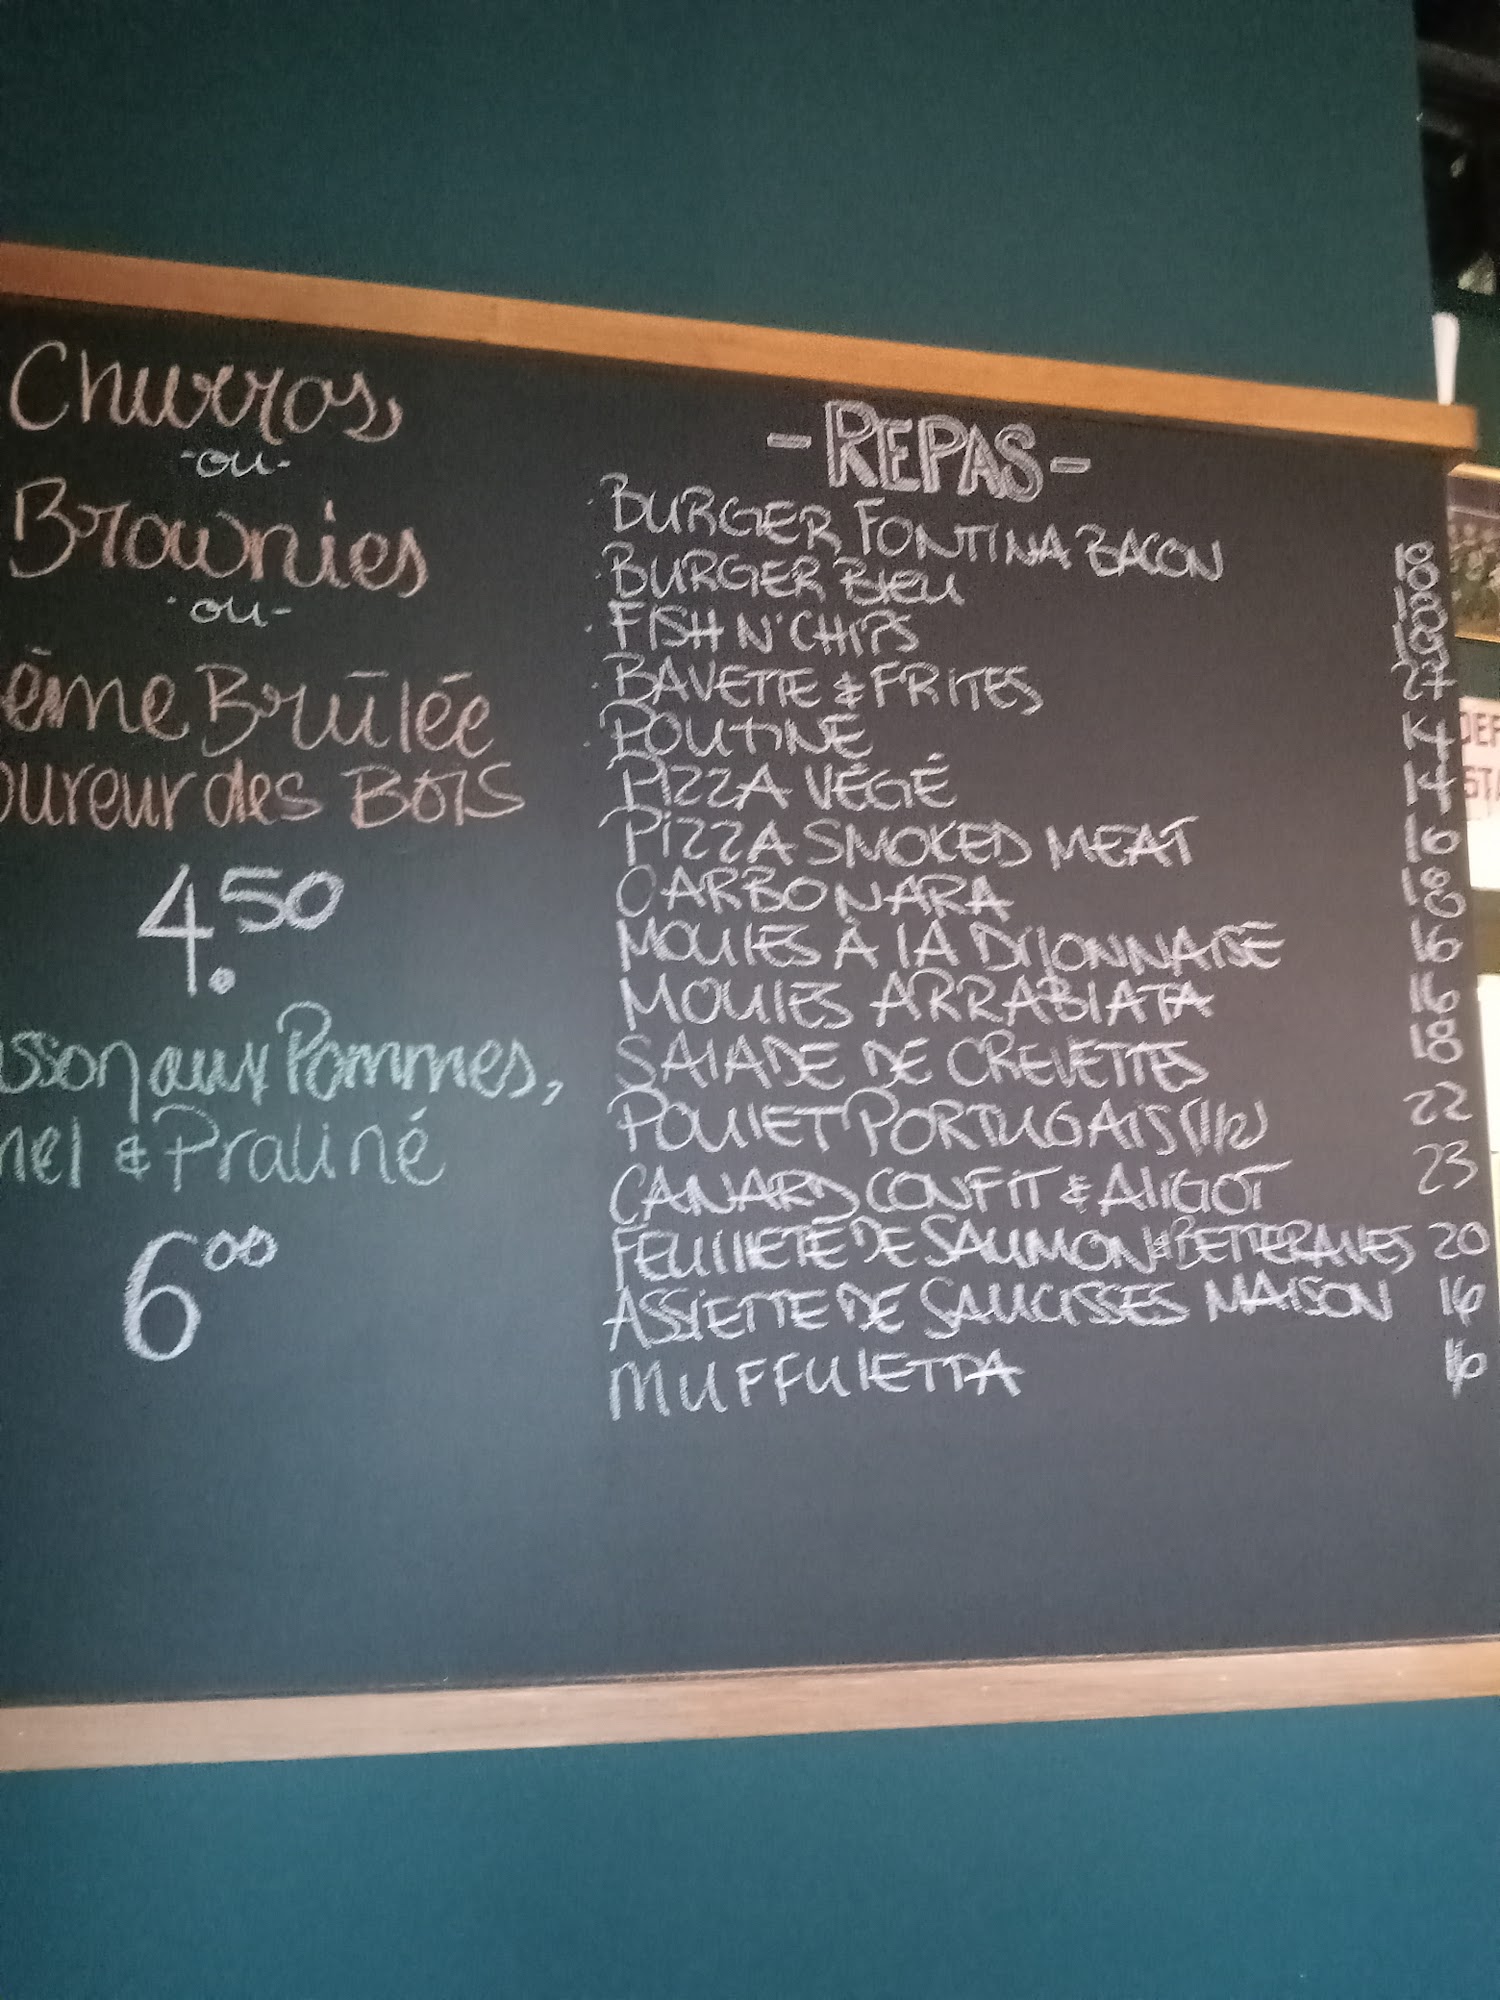 Churros,
-ou-
Brownies
-ou-
ème Brûlée
oureur des Bois
4.50
sson aux Pommes,
mel & Praliné
6 00
- REPAS -
· BURGER FONTINA BACON 18
· BURGER BLEU 18
· FISH N' CHIPS
· BAVETTE & FRITES 27
· POUTINE 14
PIZZA VÉGÉ 14
PIZZA SMOKED MEAT 16
CARBONARA 18
MOULES À LA DIJONNAISE 16
MOULES ARRABIATA 16
SALADE DE CREVETTES 18
POULET PORTUGAIS (1/2) 22
CANARD CONFIT & ALIGOT 23
FEUILLETÉ DE SAUMON & BETTERAVES 20
ASSIETTE DE SAUCISSES MAISON 16
MUFFULETTA 16